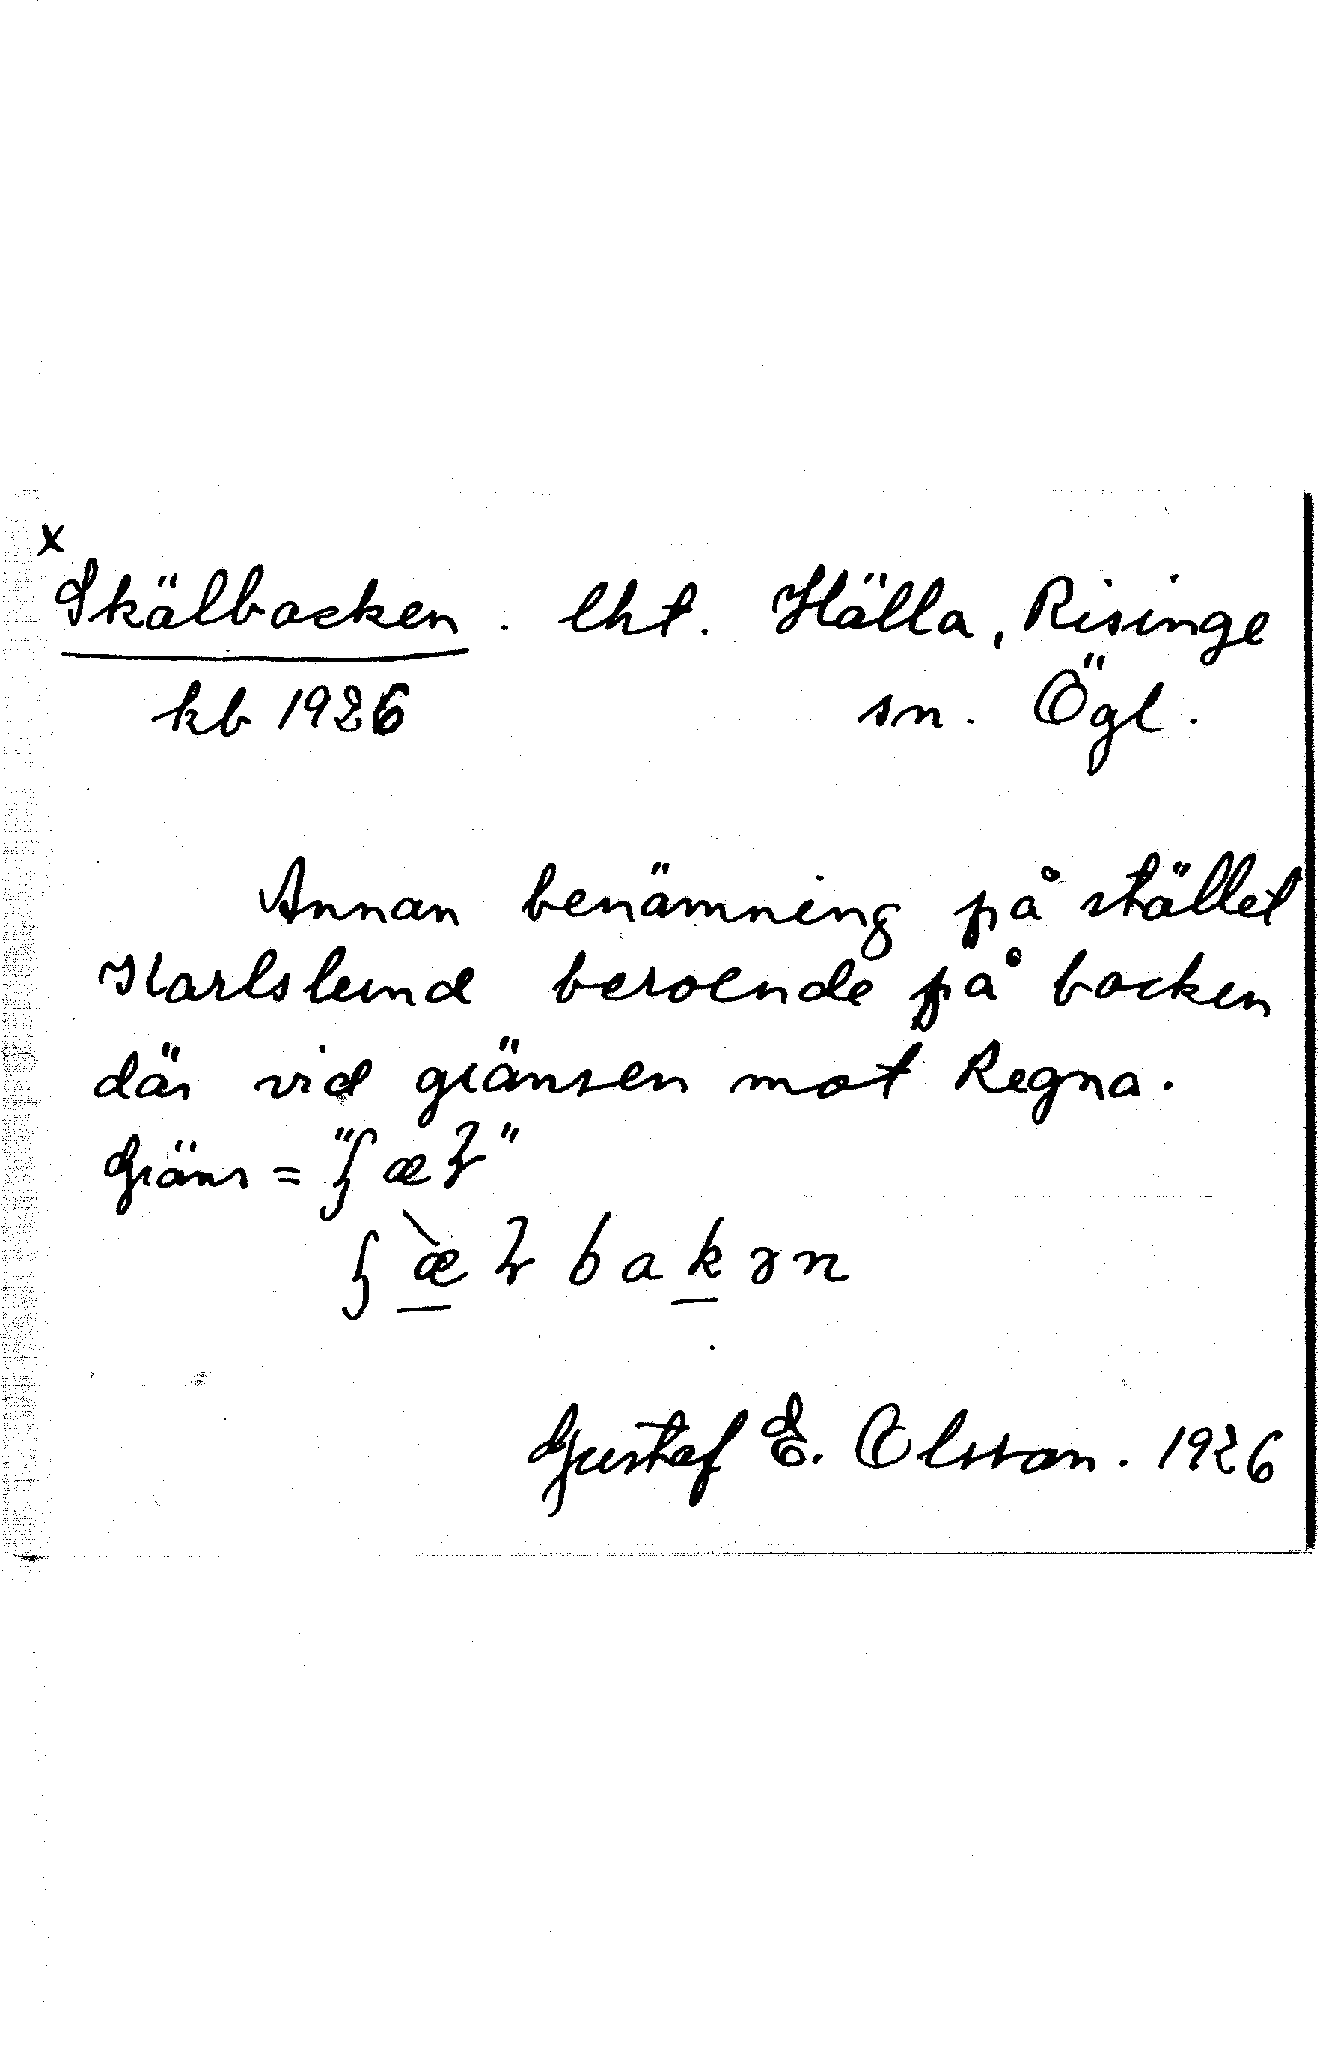 x
Skälbacken. lht. Hälla, Risinge
kb 1926 sn. Ögl.
Annan benämning på stället
Karlslund beroende på backen
där vid gränsen mot Regna.
Gräns = "
Gustaf E. Olsson. 1926